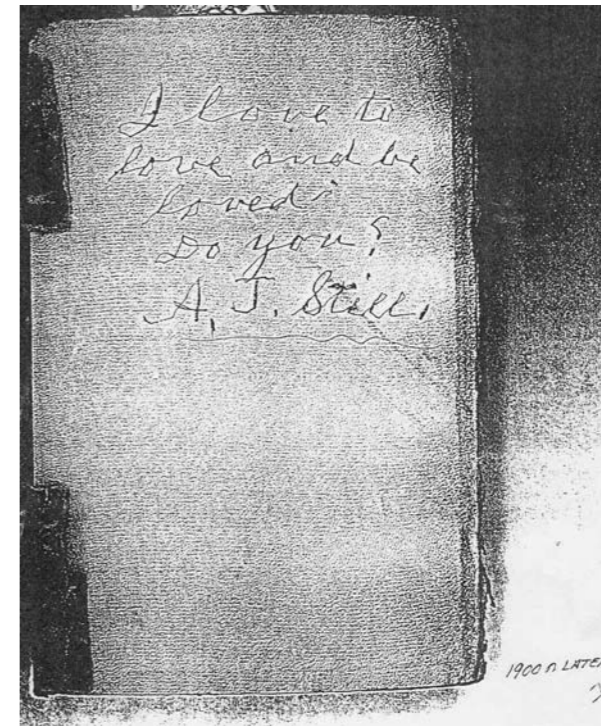 I love to
love and be
loved
Do you?
A. T. Still.
1900 or LATER